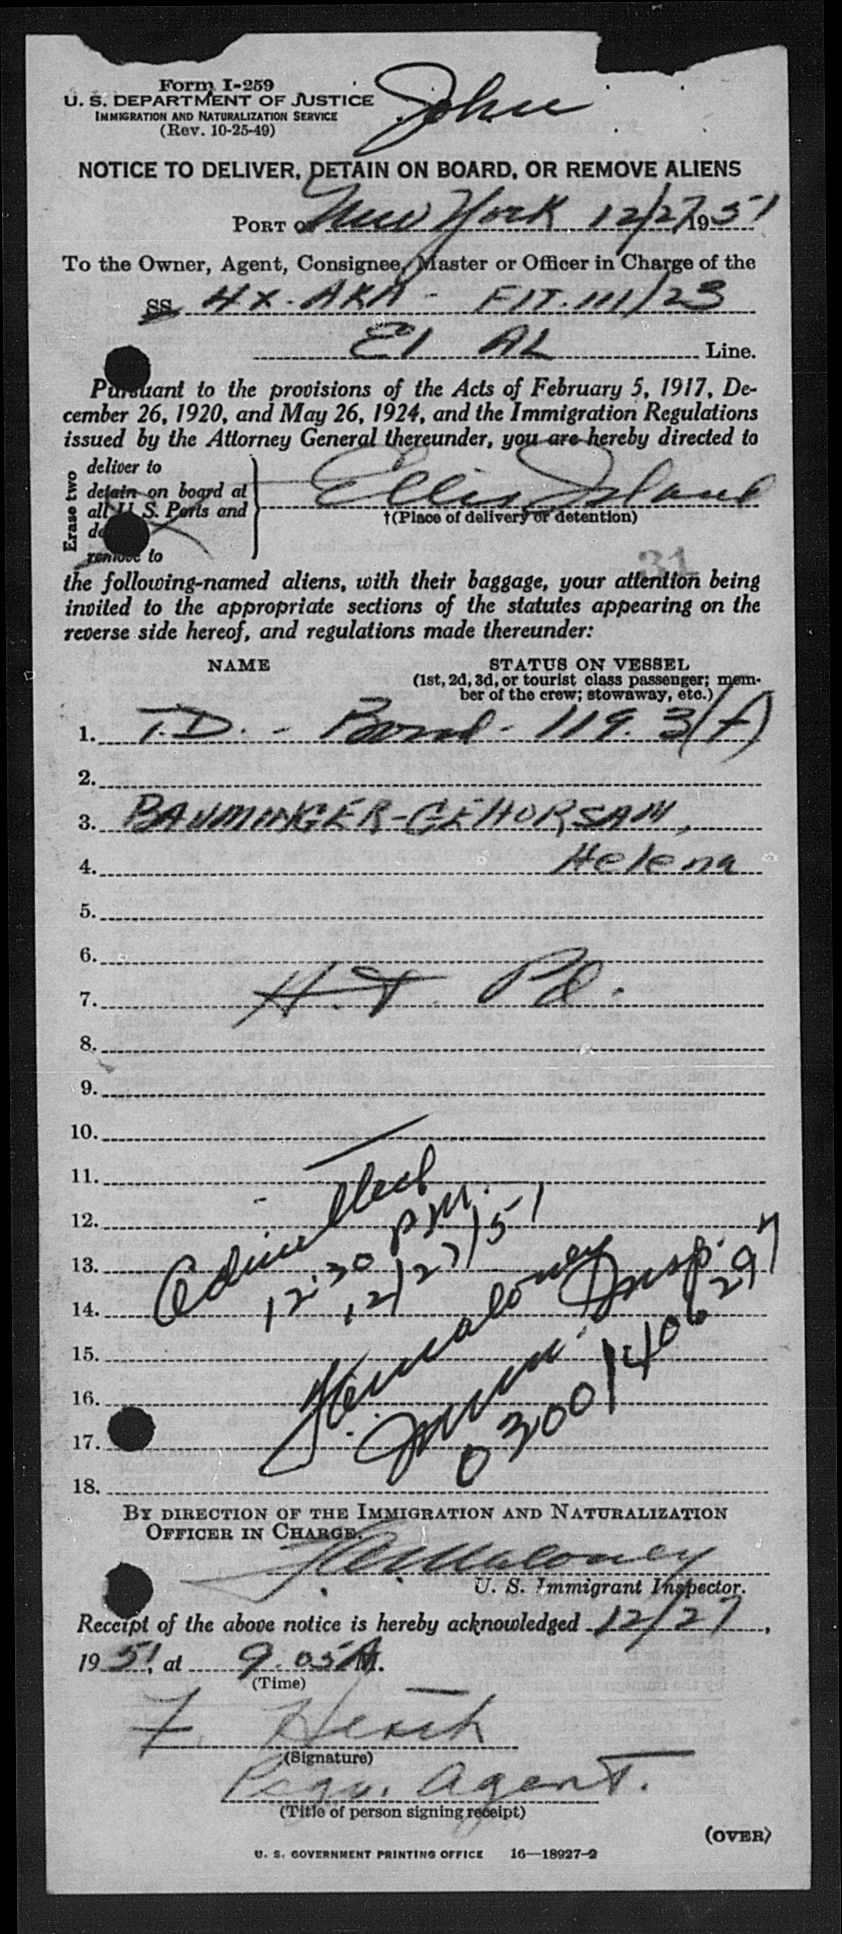 Form I-259
U. S. DEPARTMENT OF JUSTICE
IMMIGRATION AND NATURALIZATION SERVICE
(Rev. 10-25-49)
John
NOTICE TO DELIVER, DETAIN ON BOARD, OR REMOVE ALIENS
PORT OF New York 12/27 1951
To the Owner, Agent, Consignee, Master or Officer in Charge of the
SS 4X-AKA- FIT. 111/23
El AL Line.
Pursuant to the provisions of the Acts of February 5, 1917, De-
cember 26, 1920, and May 26, 1924, and the Immigration Regulations
issued by the Attorney General thereunder, you are hereby directed to
Erase two
deliver to
detain on board at
all U. S. Ports and
remove to
Ellis Island
†(Place of delivery or detention)
31
the following-named aliens, with their baggage, your attention being
invited to the appropriate sections of the statutes appearing on the
reverse side hereof, and regulations made thereunder:
NAME STATUS ON VESSEL
(1st, 2d, 3d, or tourist class passenger; mem-
ber of the crew; stowaway, etc.)
1. T.D. - Bond - 119. 3(f)
2.
3. BAUMINGER-GEHORSAM,
4. Helena
5.
6.
7. H.T. Pd.
8.
9.
10.
11. Admitted
12. 12:30 PM.
13. 12/27/51
14.
15.
16. Insp.
17. Imm. 0300/406297
18.
BY DIRECTION OF THE IMMIGRATION AND NATURALIZATION
OFFICER IN CHARGE.
Maloney
U. S. Immigrant Inspector.
Receipt of the above notice is hereby acknowledged 12/27,
1951, at 9.05 A M.
(Time)
F.
(Signature)
Agent.
(Title of person signing receipt)
(OVER)
U. S. GOVERNMENT PRINTING OFFICE 16—18927-2